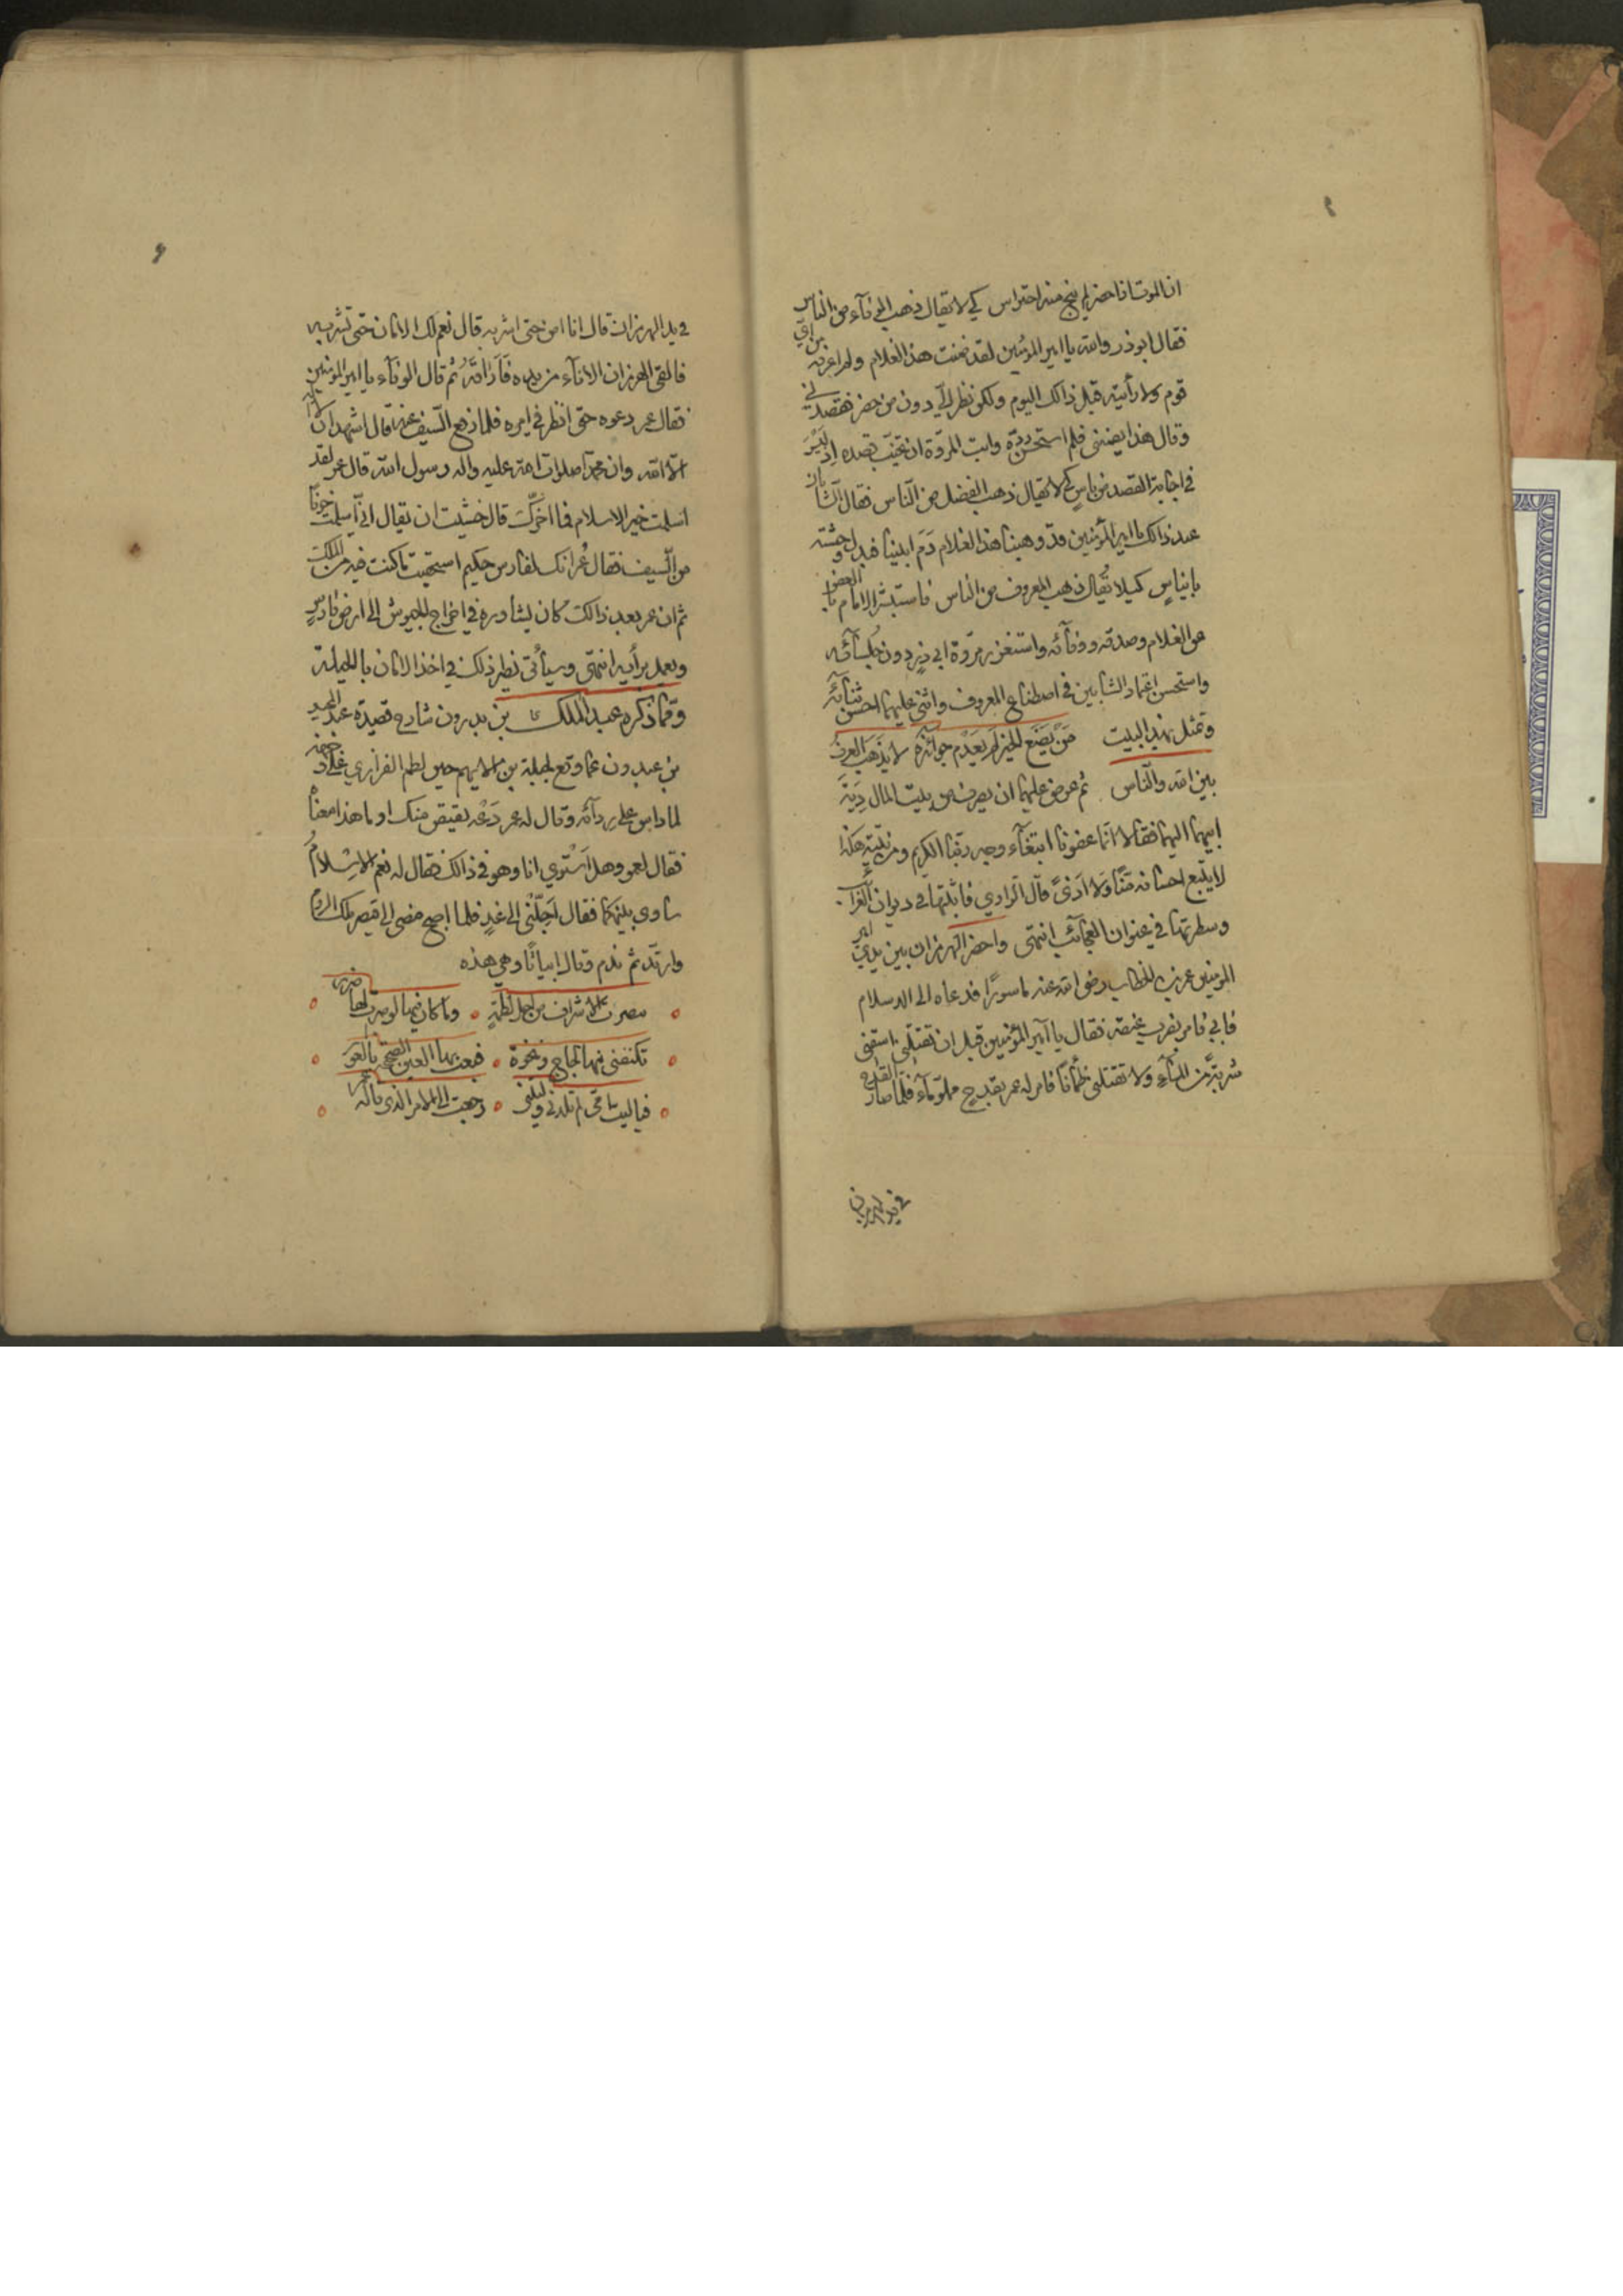 ان الموت اذا حضر لم ينج منه احتراس كي لا يقال ذهب الوفآء من الناس
فقال ابو ذر والله يا امير المؤمنين لقد ضمنت هذا الغلام ولم اعرفه من اي
قوم ولا رأيته قبل ذالك اليوم ولكن نظر اليّ دون من حضر فقصدني
وقال هذا يضمنني فلم استحسن ردّه وابت المروّة ان تخيّب قصده اذ ليس
في اجابة القصد من باسٍ كي لا يقال ذهب الفضل من الناس فقال الشابان
عند ذالك يا امير المؤمنين قد وهبنا هذا الغلام دم ابينا فبدل وحشته
بايناسٍ كيلا يُقال ذهب المعروف من الناس فاستبشر الامام بالعفو
عن الغلام وصدقه ووفآئه واستغزر مروّة ابي ذرٍ دون جلسآئه
واستحسن اعتماد الشابين في اصطناع المعروف واثنى عليهما احسن ثنآئه
وتمثل بهذا البيت من يصنع الخير لم يعدم جوائزه لا يذهب العرف
بين الله والناس ثم عرض عليهما ان يصرف من بيت المال دية
ابيهما اليهما فقالا انّما عفونا ابتغآء وجه ربّنا الكريم ومن نيّته هكذا
لا يتبع احسانه منّا ولا اذىً قال الراوي فاثبتّها في ديوان الغرآئب
وسطرتها في عنوان العجائب انتهى واحضر الهرمزان بين يدي امير
المؤمنين عمر بن الخطاب رضى الله عنه ماسورًا فدعاه الى الاسلام
فابي فامر بضرب عنقه فقال يا أمير المؤمنين قبل ان تقتلني اسقني
شربةً من المآء ولا تقتلني ظمآنًا فامر له عمر بقدح مملوّ مآء فلما صار القدح
في يد الهرمزان
في يد الهرمزان قال انا امن حتى اشربه قال نعم لك الامان حتى تشربه
فالقى الهرمزان الاناء من يده فاراقه ثم قال الوفآء يا امير المؤمنين
فقال عمر دعوه حتى انظر في امره فلما رفع السيف عنه قال اشهد ان لا اله
الا الله وان محمدا صلوات الله عليه واله رسول الله قال عمر لقد
اسلمت خير الاسلام فما اخرّك قال خشيت ان يقال اني اسلمت خوفًا
من السيف فقال عمر انك لفارس حكيم استحقيت ما كنت فيه من الملك
ثم ان عمر بعد ذالك كان يشاوره في اخراج الجيوش الى ارض فارس
ويعمل برأيه انتهى وسيأتي نظير ذلك في اخذ الامان بالحيلة
وممّا ذكره عبد الملك بن بدرون شارح قصيدة عبد المجيد
بن عبدون مما وقع لجبلة بن الايهم حين لطم الفزاري
لما داس على ردآئه وقال له عمر دعه يقتص منك
فقال لعمر وهل أستوي انا وهو في ذالك فقال له نعم الاسلام
ساوى بينكما فقال اجّلني الى غدٍ فلما اصبح مضى الى قيصر ملك الروم
وارتدّ ثم ندم وقال ابياتًا وهي هذه
تنصرت الاشراف من اجل لطمةٍ وما كان فيها لو صبرت لها ضرر
تكنفني فيها لجاج ونخوة فبعت بها العين الصحيحة بالعور
فيا ليت امّي لم تلدني وليتني رجعت الى الامر الذي قاله عمر